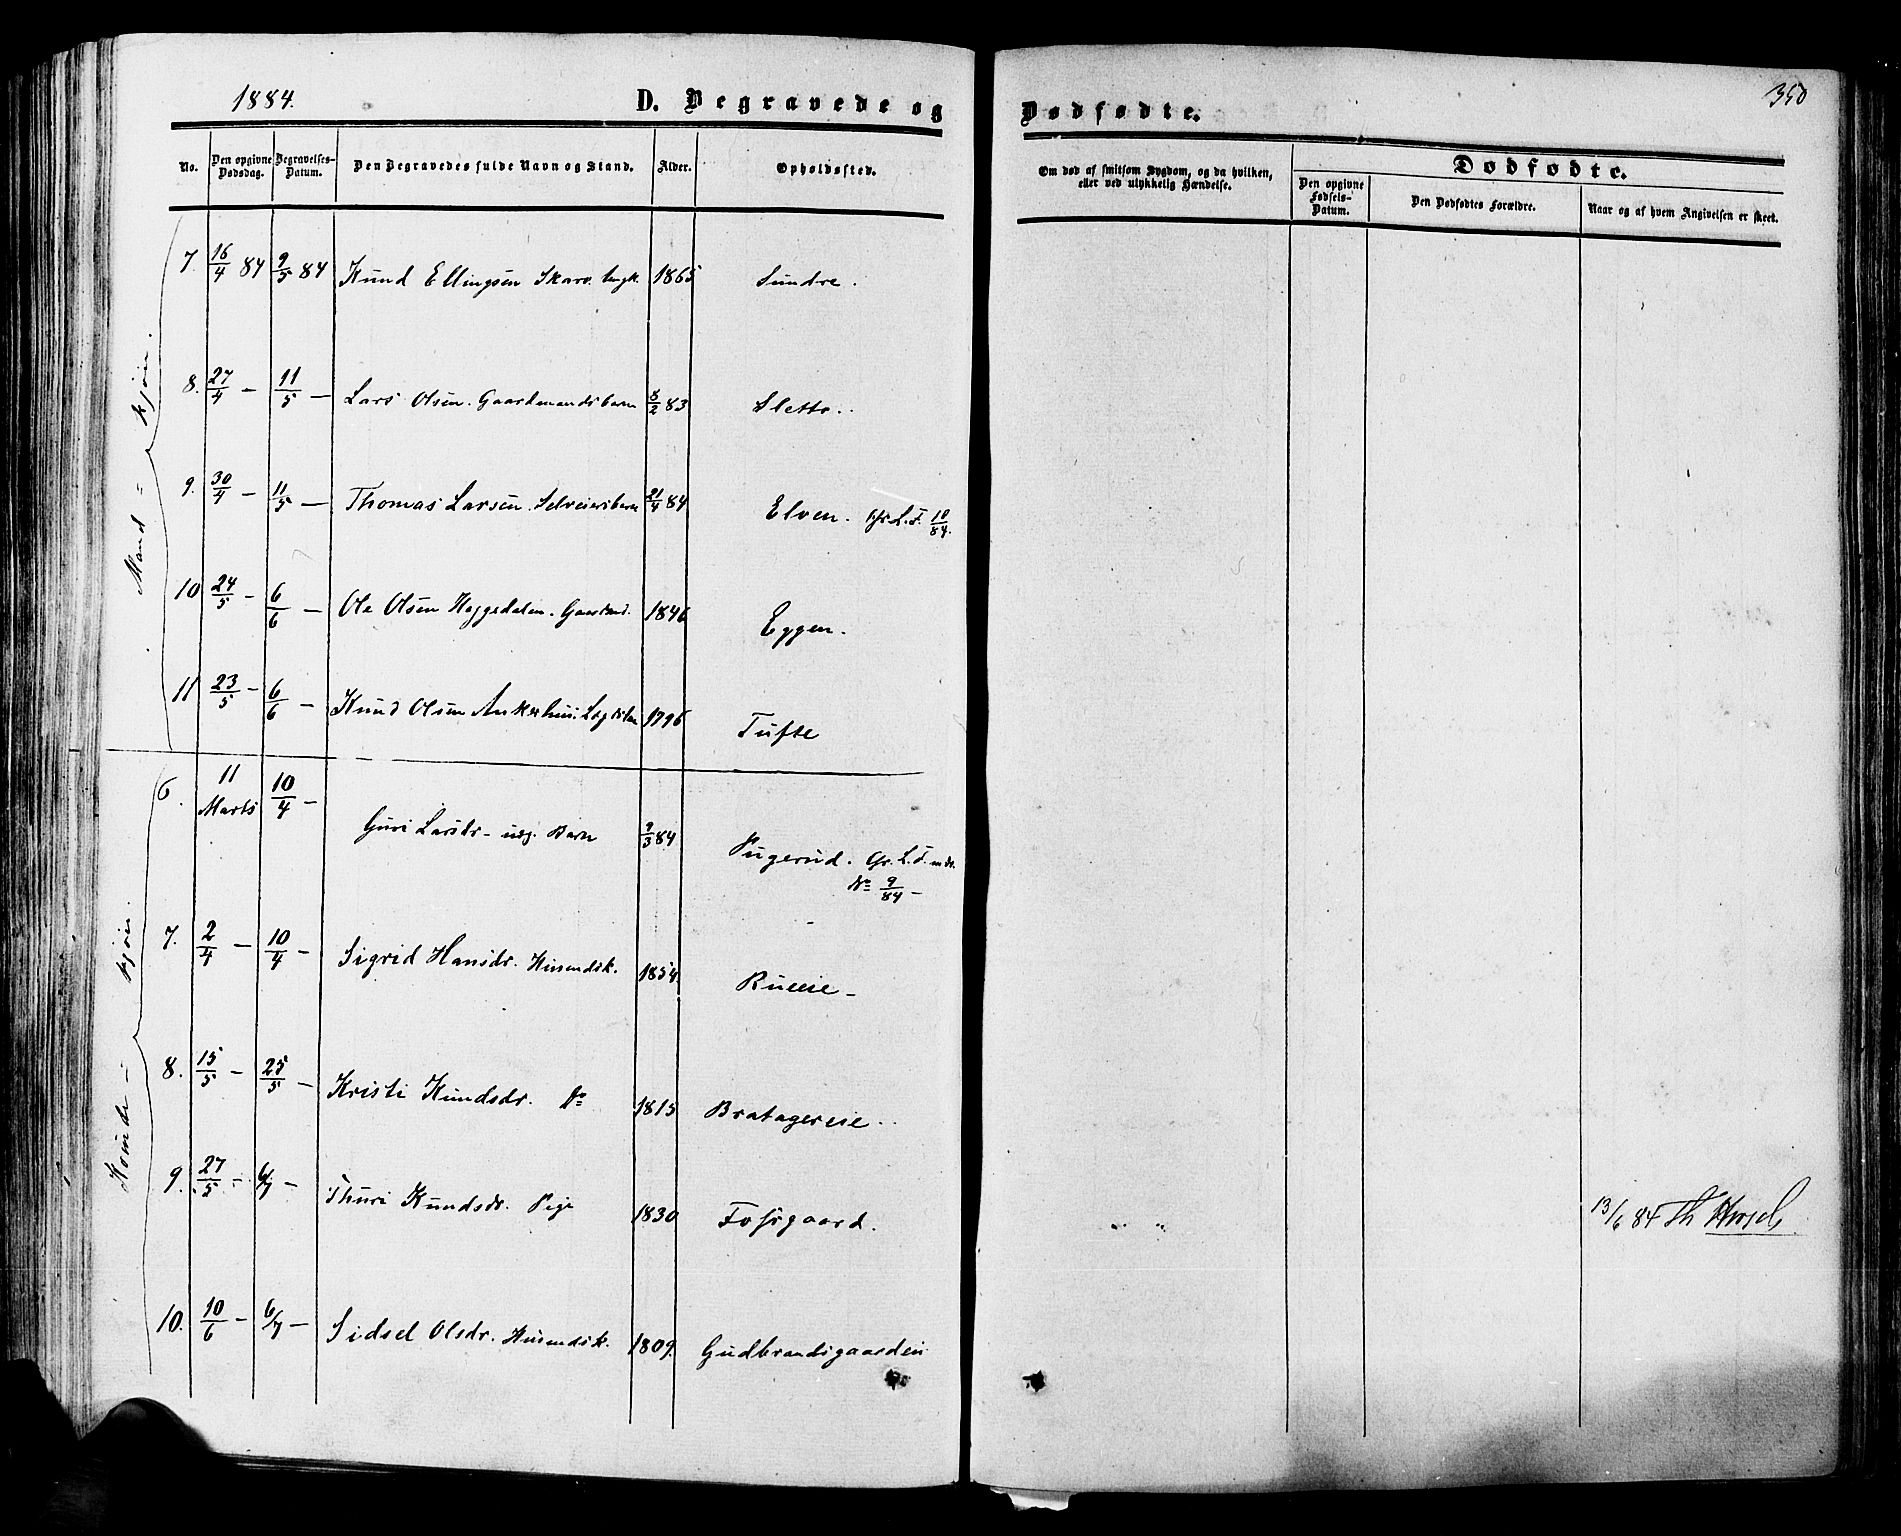 1884.
D. Begravede og Dødfødte.
350
No.
Den opgivne Dødsdag.
Begravelses-Datum.
Den Begravedes fulde Navn og Stand.
Alder.
Opholdssted.
Om død af smitsom Sygdom, og da hvilken, eller ved ulykkelig Hændelse.
Dødfødte.
Den opgivne Fødsels-Datum.
Den Dødfødtes Forældre.
Naar og af hvem Angivelsen er skeet.
Mand = kjøn.
7. 16/4 84 9/5 84 Knud Ellingsen Skaro. Ungk. 1865 Sundre.
8. 27/4 — 11/5 — Lars Olsen. Gaardmandsbarn 5/2 83 Sletto.
9. 30/4 — 11/5 — Thomas Larsen. Selveierbarn 21/4 84 Elven. Gr. L. F. 10/84.
10 24/5 — 6/6 — Ole Olsen Haggedalen. Gaardmd. 1846 Eggen.
11 23/5 — 6/6 — Knud Olsen Ankerhus. 1796 Tufte
Kvinde – kjøn.
6. 11 Marts 10/4 — Guri Larsdr – Barn 9/3 84 Pugerud. Gr. L. F. No 9/84 —
7. 2/4 — 10/4 — Sigrid Hansdr. Husmdsk. 1854. Rueeie —
8. 15/5 — 25/5 — Kristi Knudsdr. Do 1815 Bratagereie.
9. 27/5 — 6/7 — Thuri Knudsdr. Pige 1830 Fossgaard. 13/6 84 Th
10. 10/6 — 6/7 — Sidsel Olsdr. Husmdsk. 1809. Gudbrandsgaarden